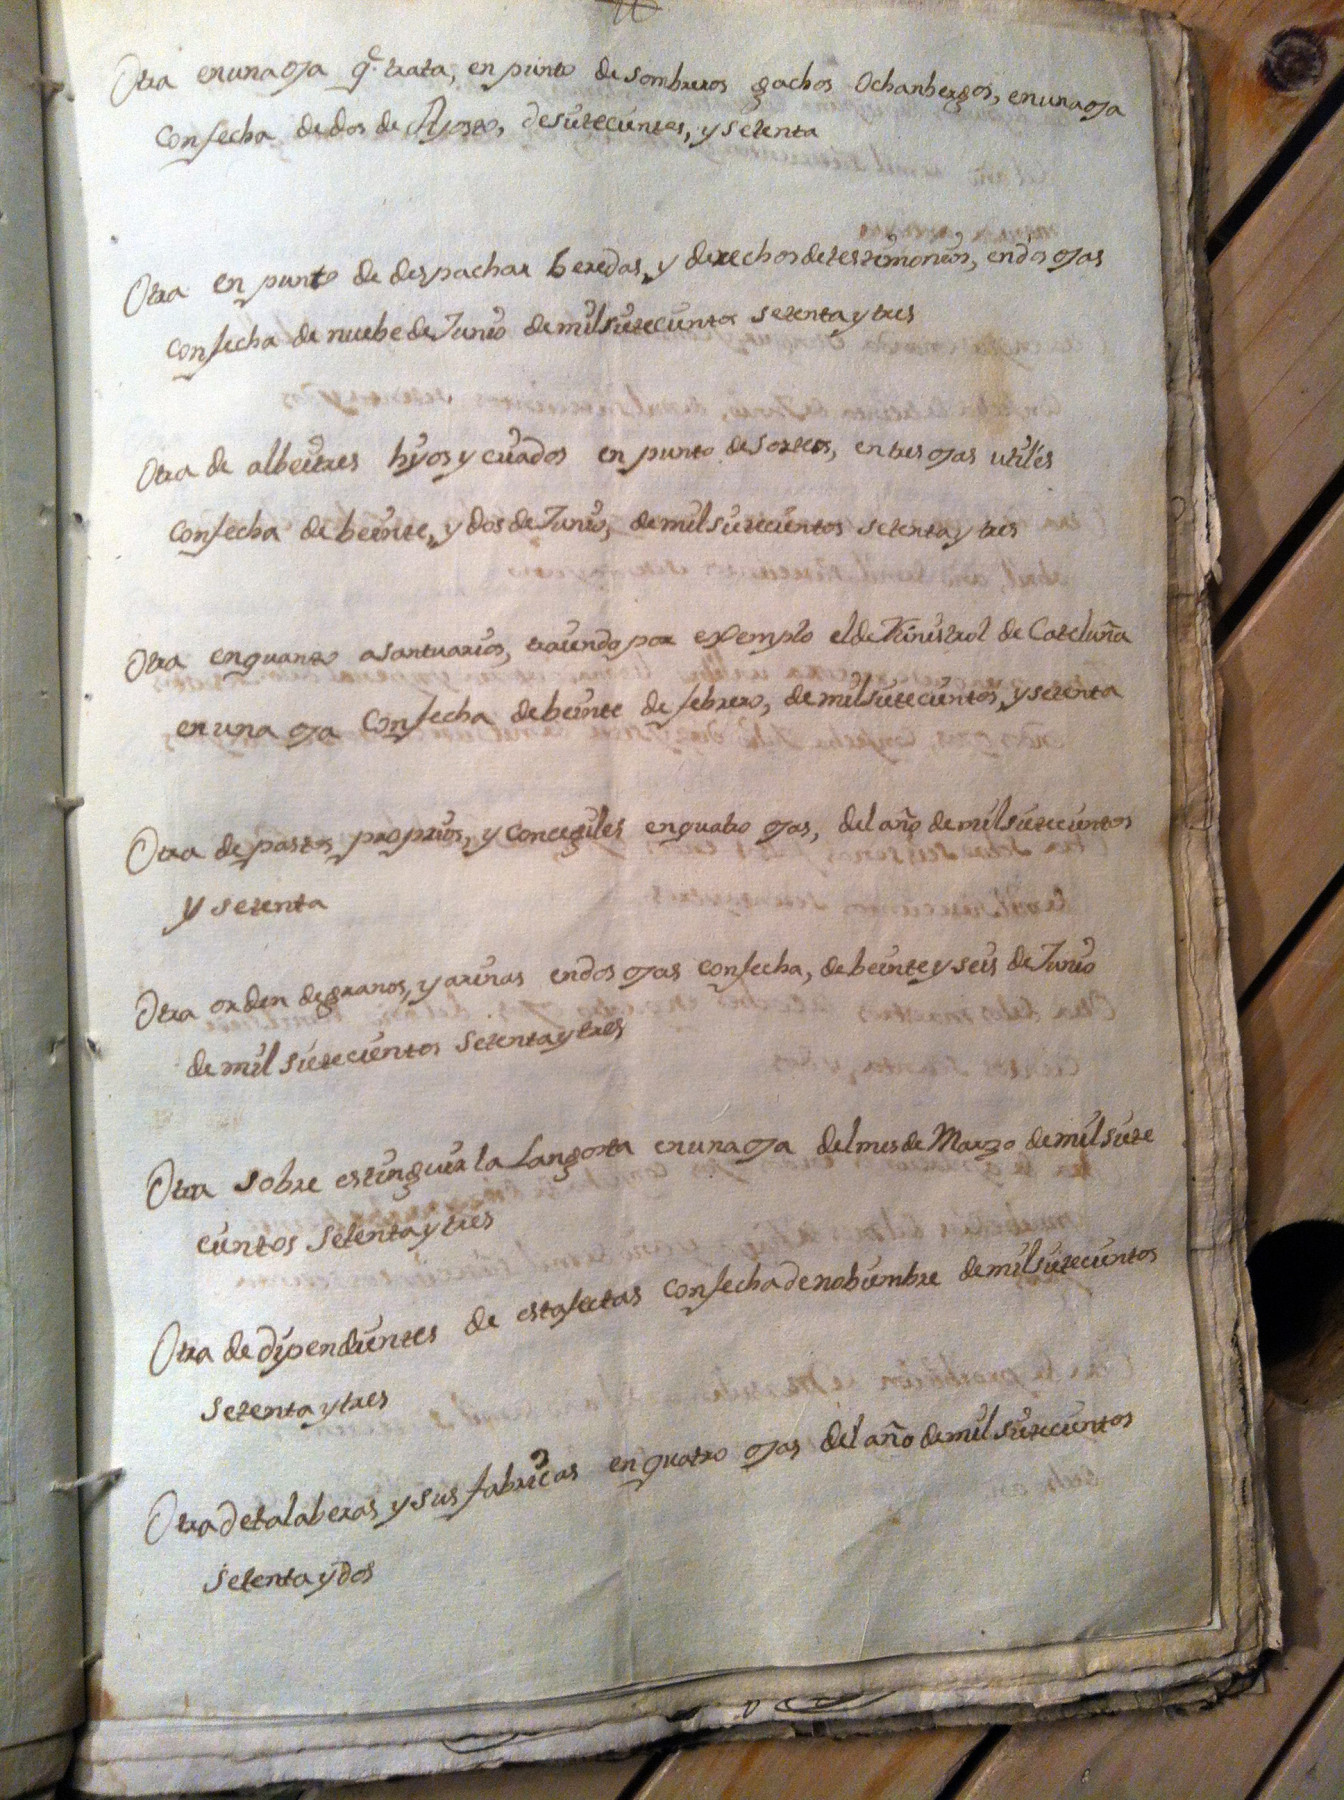 Otra en una oja q.e trata, en punto de sombreros gachos o chanbergos, en una oja
con fecha de dos de Agosto, de sietecientos, y setenta
Otra en punto de despachar beredas, y derechos de testimonios, en dos ojas
con fecha de nuebe de Junio de mil sietecientos setenta y tres
Otra de albeitres hijos y criados en punto de sorteos, en tres ojas utiles
con fecha de beinte, y dos de Junio, de mil sietecientos setenta y tres
Otra en quanto a santuarios, traiendo por exemplo el de Ministrol de Cataluña
en una oja con fecha de beinte de febrero, de mil sietecientos, y setenta
Otra de pastos, proprios, y concegiles en quatro ojas, del año de mil sietecientos
y setenta
Otra orden de granos, y arinas en dos ojas con fecha, de beinte y seis de Junio
de mil sietecientos setenta y tres
Otra sobre estinguir la Langosta en una oja del mes de Marzo de mil siete
cientos setenta y tres
Otra de dipendientes de estafectas con fecha de nobiembre de mil sietecientos
setenta y tres
Otra de talaberas y sus fabricas en quatro ojas del año de mil sietecientos
setenta y dos